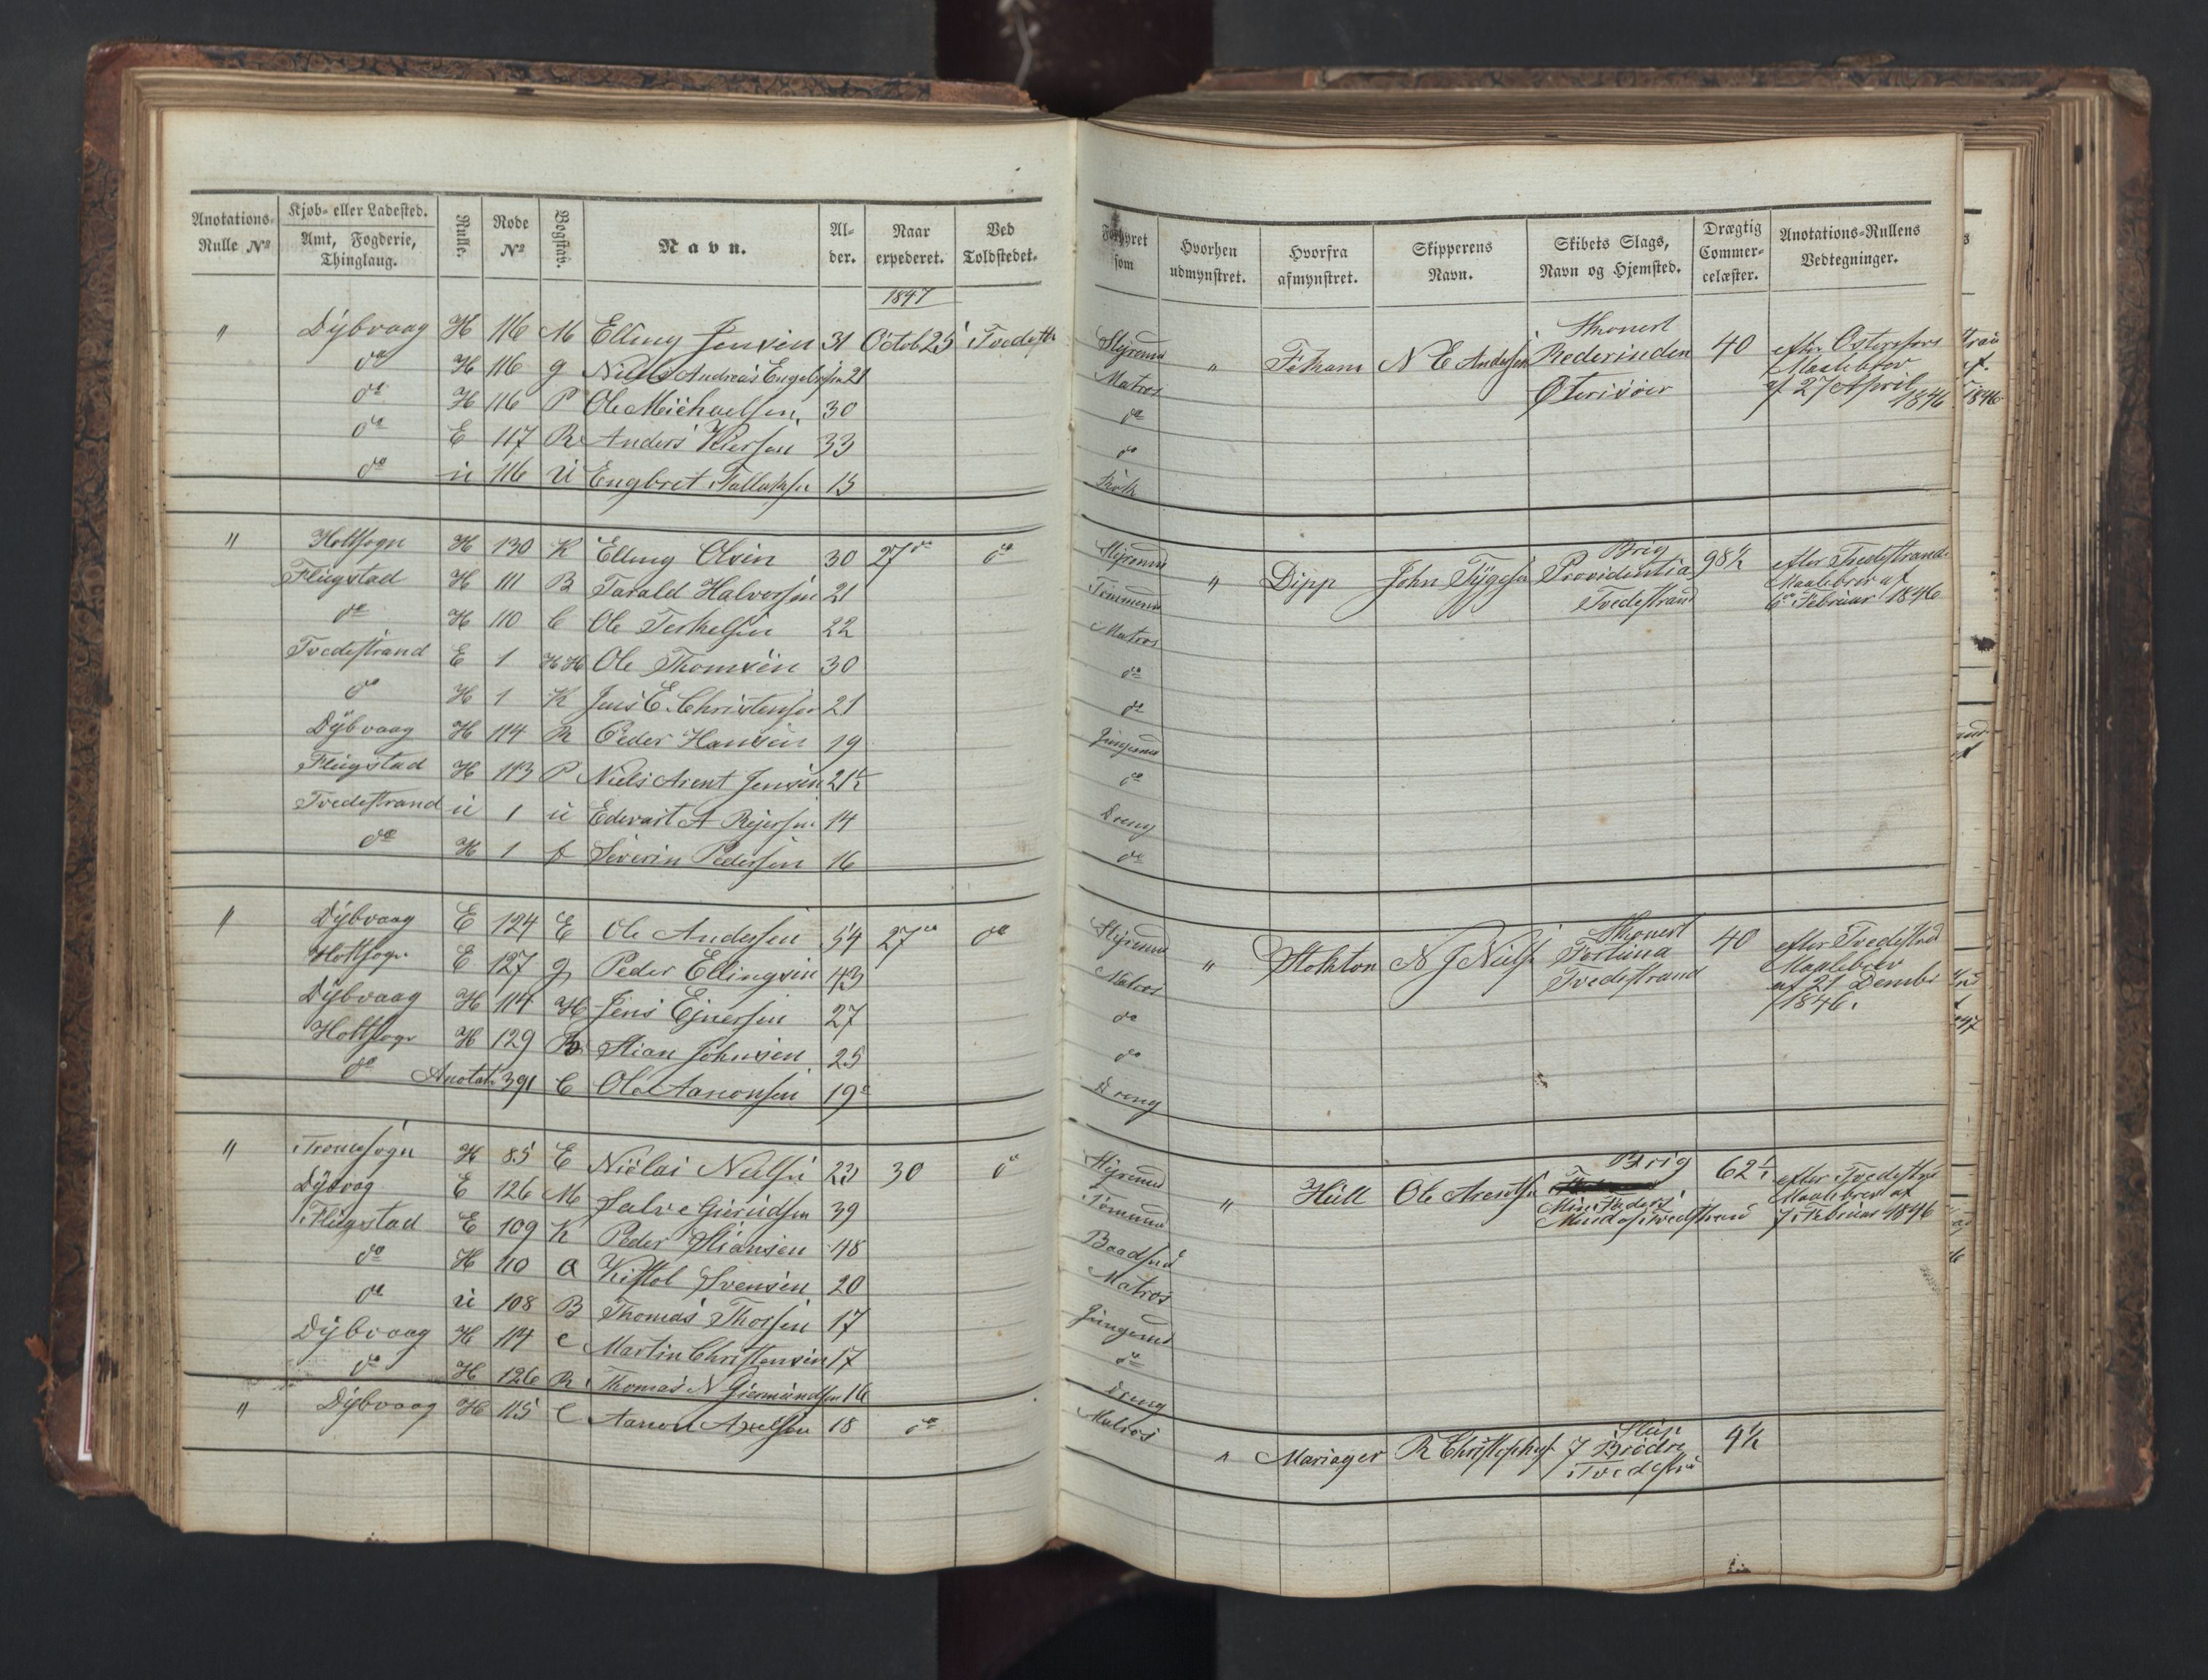 Anotations- Rulle Nº | Kjøb- eller Ladested. Amt, Fogderie, Thinglaug. | Rulle. | Rode Nº | Bogstav. | Navn. | Al- der. | Naar expederet. | Ved Toldstedet.
1847
" Dÿbvaag H 116 M Elling Jensen 31 Octob 25 Tvedestr
do H 116 g Niels Andreas Engebretsen 21
do H 116 P Ole Michaelsen 30
do E 117 R Anders 33
do ü 116 Ü Engbret Tallaksen 15
" Holtsogn H 130 K Elling Olsen 30 27 do do
Flügstad H 111 B Tarald Halvorsen 21
do H 110 C Ole Terkelsen 22
Tvedestrand E 1 HH Ole Thomsen 30
do H 1 K Jens E. Christensen 21
Dÿbvaag H 114 R Peder Hansen 19
Flügstad H 113 P Niels Arent Jensen 21½
Tvedestrand ü 1 ü Edevart A Rejersen 14
do H 1 f Severin Pedersen 16
" Dÿbvaag E 124 E Ole Andersen 54 27 do do
Holtsogn E 127 g Peder Ellingsen 43
Dÿbvaag H 114 H Jens Ejnersen 27
Holtsogn H 129 R Stian Johnsen 25
do Anotat. 391 C Ole Aanonsen 19
" Tromøsogn H 85 E Nicolai Nielsen 23 30 do
Dÿbvag E 126 M Salve Gierudsen 39
Flügstad E 109 K Peder Stiansen 48
do H 110 a Kistol Svensen 20
do ü 108 B Thomas Thorsen 17
Dÿbvaag H 114 C Martin Christensen 17
do H 126 R Thomas N Giermundsen 16
" Dÿbvaag H 115 C Aanon Axelsen 18 do
Forhyret som | Hvorhen udmynstret. | Hvorfra afmynstret. | Skipperens Navn. | Skibets Slags, Navn og Hjemsted. | Drægtig Commer- celæster. | Anotations-Rullens Vedtegninger.
Styrmand " N E Andersen Skonert Rederinden Østerisøer 40 efter
Matros Maalebrev
do af 27 April 1846
do
Kok
Styrmand " Dipp John Tÿgesen Brig Providentia Tvedestrand 98½ efter Tvedestrands
Tømmermd Maalebrev af
Matros 6 Februar 1846
do
do
Jungmand
do
Dreng
do
Styrmand " Stokton N J Niels Skonert Fortuna Tvedestrand 40 efter Tvedestrand
Matros Maalebrev
do af 21 Dembr
do 1846.
Dreng
Styrmand " Hüll Ole Arentsen Brig 62½ efter Tvedestrand
Tømmermd Mine Faders Maalebrev af
Baadsmd Minde af Tvedestrand 7 Februar 1846
Matros
Jungmand
do
Dreng
Matros " Mariager R Christophers Slup 7 Brødre Tvedestrd 9½